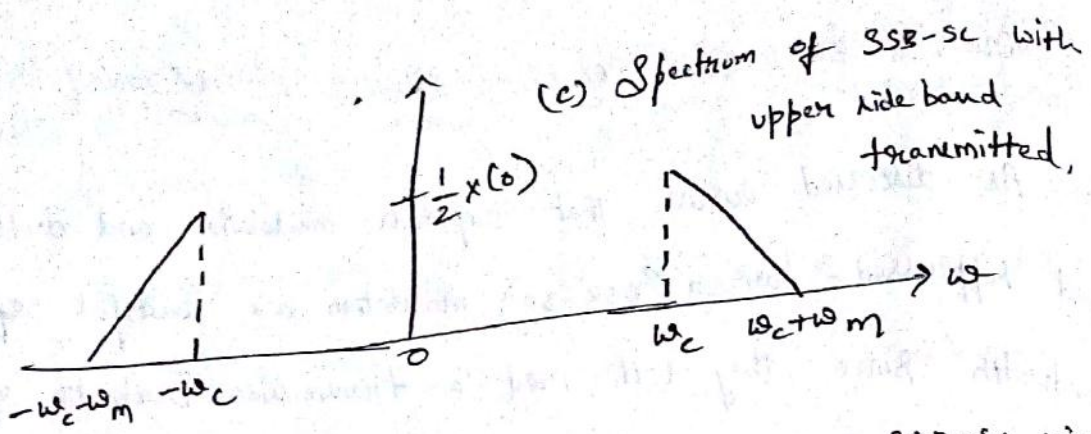 (c) Spectrum of SSB-SC with
upper side band
transmitted,
1/2 x(0)
ω
-ωc-ωm -ωc 0 ωc ωc+ωm